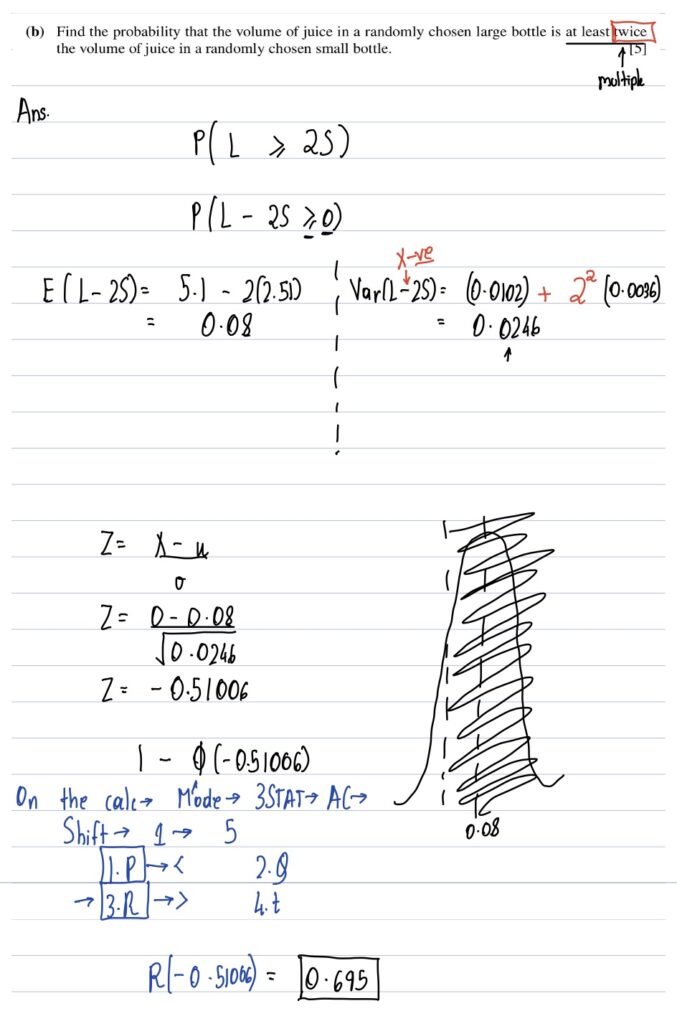 (b) Find the probability that the volume of juice in a randomly chosen large bottle is at least twice
the volume of juice in a randomly chosen small bottle. [5]
multiple
Ans.
P(L ⩾ 2S)
P(L - 2S ⩾ 0)
x-ve
E(L-2S)= 5.1 - 2(2.51)
= 0.08
Var(L-2S)= (0.0102) + 2² (0.0036)
= 0.0246
Z= X-μ
σ
Z= 0-0.08
√0.0246
Z= -0.51006
1 - Φ(-0.51006)
0.08
On the calc→ Mode→ 3STAT→ AC→
Shift→ 1→ 5
1.P →< 2.Q
→ 3.R →> 4.t
R(-0.51006) = 0.695